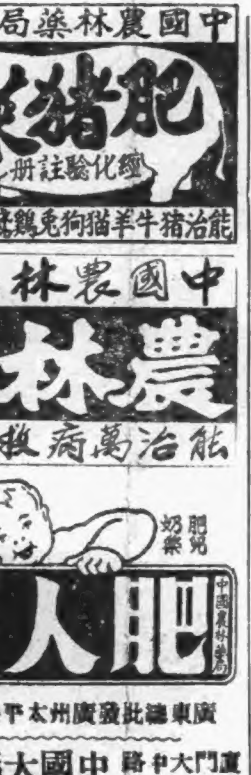 中國農林藥局
肥猪
經化驗註册
能治猪牛羊猫狗兔鷄
中國農林
農林
能治萬病救
肥兒
奶
中國農林藥局
肥人
廣東總批發廣州太平
廈門大中路中國大